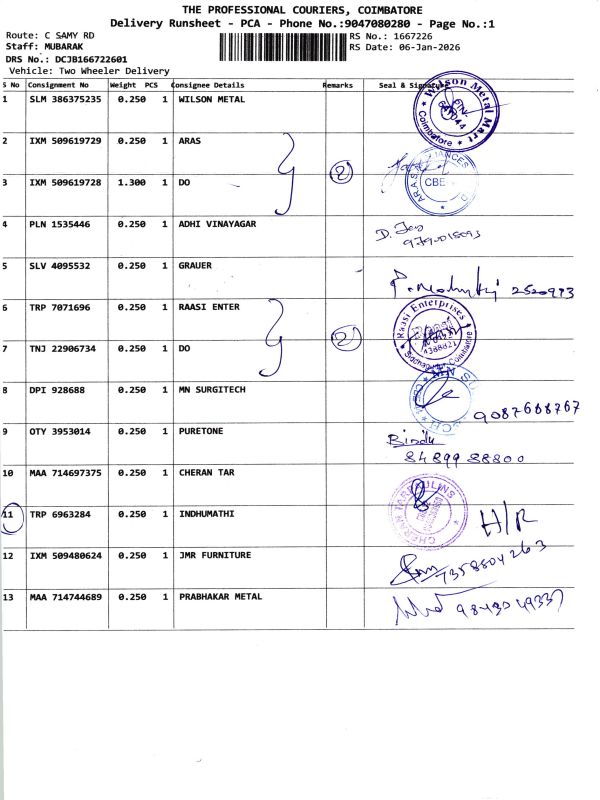 THE PROFESSIONAL COURIERS, COIMBATORE
Delivery Runsheet - PCA - Phone No.:9047080280 - Page No.:1
Route: C SAMY RD RS No.: 1667226
Staff: MUBARAK RS Date: 06-Jan-2026
DRS No.: DCJB166722601
Vehicle: Two Wheeler Delivery
S No Consignment No Weight PCS Consignee Details Remarks Seal & Signature
1 SLM 386375235 0.250 1 WILSON METAL Wilson Metal Mart Coimbatore
2 IXM 509619729 0.250 1 ARAS
3 IXM 509619728 1.300 1 DO 2 CBE
4 PLN 1535446 0.250 1 ADHI VINAYAGAR
5 SLV 4095532 0.250 1 GRAUER 2520973
6 TRP 7071696 0.250 1 RAASI ENTER Raasi Enterprises
7 TNJ 22906734 0.250 1 DO 2
8 DPI 928688 0.250 1 MN SURGITECH 9087688767
9 OTY 3953014 0.250 1 PURETONE Bindu
84899 88800
10 MAA 714697375 0.250 1 CHERAN TAR CHERAN TARPAULINS
11 TRP 6963284 0.250 1 INDHUMATHI H/R
12 IXM 509480624 0.250 1 JMR FURNITURE 7358504263
13 MAA 714744689 0.250 1 PRABHAKAR METAL 9843049337